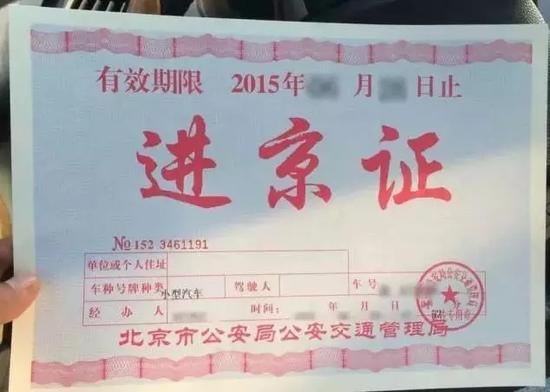 有效期限 2015年 月 日止
进京证
№152 3461191
单位或个人住址
车种号牌种类 小型汽车 驾驶人 车号
经办人 时间: 年 月
北京市公安局公安交通管理局